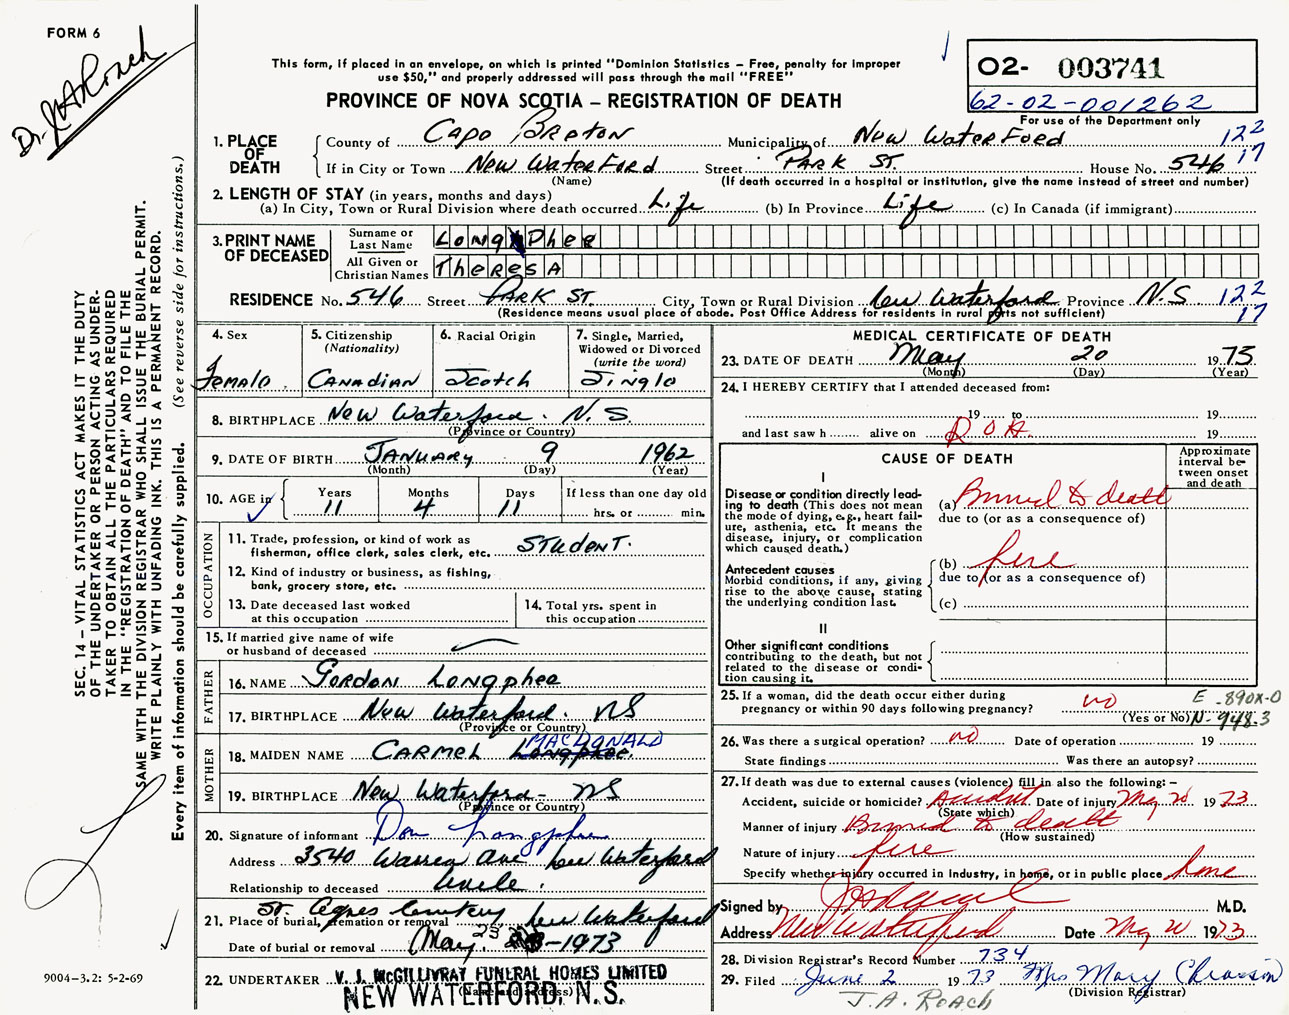 FORM 6
Dr. J.A. Roach
This form, if placed in an envelope, on which is printed "Dominion Statistics – Free, penalty for improper
use $50," and properly addressed will pass through the mail "FREE"
PROVINCE OF NOVA SCOTIA – REGISTRATION OF DEATH
O2- 003741
62-02-001262
For use of the Department only
1. PLACE OF DEATH
County of Cape Breton Municipality of New Waterford 122
If in City or Town New Waterford Street PARK ST. House No. 546 17
(Name) (If death occurred in a hospital or institution, give the name instead of street and number)
2. LENGTH OF STAY (in years, months and days)
(a) In City, Town or Rural Division where death occurred Life (b) In Province Life (c) In Canada (if immigrant)
3. PRINT NAME OF DECEASED
Surname or Last Name Longphee
All Given or Christian Names TheresA
RESIDENCE No. 546 Street PARK ST. City, Town or Rural Division New Waterford Province N.S 122
(Residence means usual place of abode. Post Office Address for residents in rural parts not sufficient) 17
4. Sex Female
5. Citizenship (Nationality) CANADIAN
6. Racial Origin Scotch
7. Single, Married, Widowed or Divorced (write the word) Single
8. BIRTHPLACE New Waterford. N.S.
(Province or Country)
9. DATE OF BIRTH JANUARY 9 1962
(Month) (Day) (Year)
10. AGE in Years 11 Months 4 Days 11 If less than one day old
hrs. or min.
OCCUPATION
11. Trade, profession, or kind of work as fisherman, office clerk, sales clerk, etc. STUDENT.
12. Kind of industry or business, as fishing, bank, grocery store, etc.
13. Date deceased last worked at this occupation
14. Total yrs. spent in this occupation
15. If married give name of wife or husband of deceased
FATHER
16. NAME GORDON Longphee
17. BIRTHPLACE New Waterford. NS
(Province or Country)
MOTHER
18. MAIDEN NAME CARMEL Longphee MACDONALD
19. BIRTHPLACE New Waterford - NS
(Province or Country)
20. Signature of informant Don Longphee
Address 3540 Warren Ave New Waterford
Relationship to deceased Uncle.
21. Place of burial, cremation or removal St. Agnes Cemetery New Waterford
Date of burial or removal May 23 -1973
22. UNDERTAKER V. J. McGILLIVRAY FUNERAL HOMES LIMITED
(Name and address)
NEW WATERFORD, N.S.
MEDICAL CERTIFICATE OF DEATH
23. DATE OF DEATH May 20 1973
(Month) (Day) (Year)
24. I HEREBY CERTIFY that I attended deceased from:
19 to 19
and last saw h alive on D O A. 19
CAUSE OF DEATH
Approximate interval between onset and death
I
Disease or condition directly leading to death (This does not mean the mode of dying, e.g., heart failure, asthenia, etc. It means the disease, injury, or complication which caused death.)
(a) Burned to death
due to (or as a consequence of)
Antecedent causes
Morbid conditions, if any, giving rise to the above cause, stating the underlying condition last.
(b) fire
due to (or as a consequence of)
(c)
II
Other significant conditions
contributing to the death, but not related to the disease or condition causing it.
25. If a woman, did the death occur either during pregnancy or within 90 days following pregnancy? no
(Yes or No)
E-890X-0
N-948.3
26. Was there a surgical operation? no Date of operation 19
State findings Was there an autopsy?
27. If death was due to external causes (violence) fill in also the following: –
Accident, suicide or homicide? Accident Date of injury May 20 1973
(State which)
Manner of injury Burned to death
(How sustained)
Nature of injury fire
Specify whether injury occurred in industry, in home, or in public place home
Signed by M.D.
Address New Waterford Date May 20 1973
28. Division Registrar's Record Number 734
29. Filed June 2 1973 Mrs Mary Chiasson
(Division Registrar)
J.A. ROACH
SEC. 14 – VITAL STATISTICS ACT MAKES IT THE DUTY
OF THE UNDERTAKER OR PERSON ACTING AS UNDER-
TAKER TO OBTAIN ALL THE PARTICULARS REQUIRED
IN THE "REGISTRATION OF DEATH" AND TO FILE THE
SAME WITH THE DIVISION REGISTRAR WHO SHALL ISSUE THE BURIAL PERMIT.
WRITE PLAINLY WITH UNFADING INK. THIS IS A PERMANENT RECORD.
Every item of information should be carefully supplied. (See reverse side for instructions.)
9004-3.2: 5-2-69